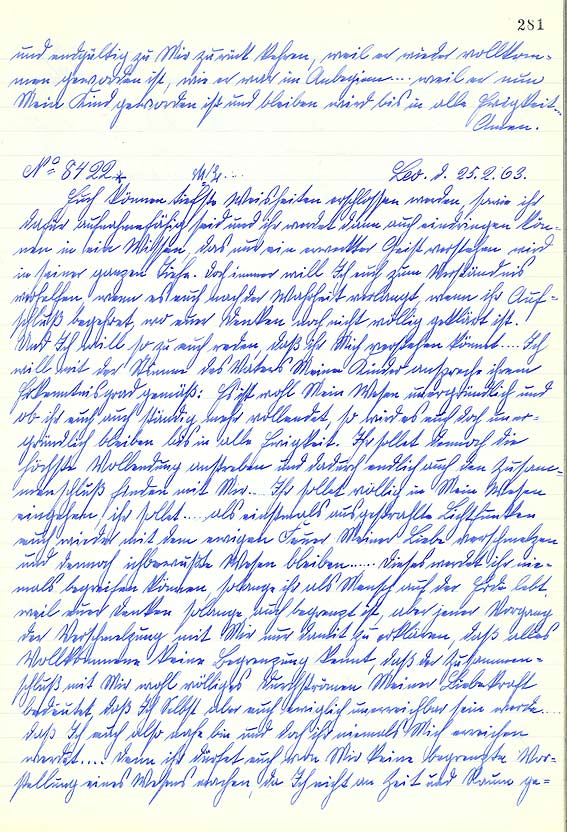 281
und endgültig zu Mir zurück kehren, weil er wieder vollkom-
men geworden ist, wie er war im Anbeginn.... weil er nun
Mein Kind geworden ist und bleiben wird bis in alle Ewigkeit...
Amen.
No 8422 Leo. d. 25.2.63.
Euch können tiefste Weisheiten erschlossen werden, sowie ihr
dafür aufnahmefähig seid und ihr werdet dann auch eindringen kön-
nen in ein Wissen, das nur ein erweckter Geist verstehen wird
in seiner ganzen Tiefe. Doch immer will Ich euch zum Verständnis
verhelfen, wenn es euch nach der Wahrheit verlangt, wenn ihr Auf-
schluß begehret, wo euer Denken noch nicht völlig geklärt ist.
Und Ich will so zu euch reden, daß ihr Mich verstehen könnt.... Ich
will mit der Stimme des Vaters Meine Kinder ansprechen ihrem
Erkenntnisgrad gemäß: Es ist wohl Mein Wesen unergründlich und
ob ihr euch auch ständig mehr vollendet, so wird es euch doch uner-
gründlich bleiben bis in alle Ewigkeit. Ihr sollet dennoch die
höchste Vollendung anstreben und dadurch endlich auch den Zusam-
menschluß finden mit Mir.... Ihr sollet völlig in Mein Wesen
eingehen, ihr sollet.... als einstmals ausgestrahlte Lichtfunken
euch wieder mit dem ewigen Feuer Meiner Liebe verschmelzen
und dennoch ichbewußte Wesen bleiben..... Dieses werdet ihr nie-
mals begreifen können, solange ihr als Mensch auf der Erde lebt,
weil euer Denken solange auch begrenzt ist, aber jener Vorgang
der Verschmelzung mit Mir nur damit zu erklären, daß alles
Vollkommene keine Begrenzung kennt, daß der Zusammen-
schluß mit Mir wohl völliges Durchströmen Meiner Liebekraft
bedeutet, daß Ich Selbst aber euch ewiglich unerreichbar sein werde....
daß Ich euch also nahe bin und doch ihr niemals Mich erreichen
werdet.... Denn ihr dürfet euch von Mir keine begrenzte Vor-
stellung eines Wesens machen, da Ich nicht an Zeit und Raum ge=